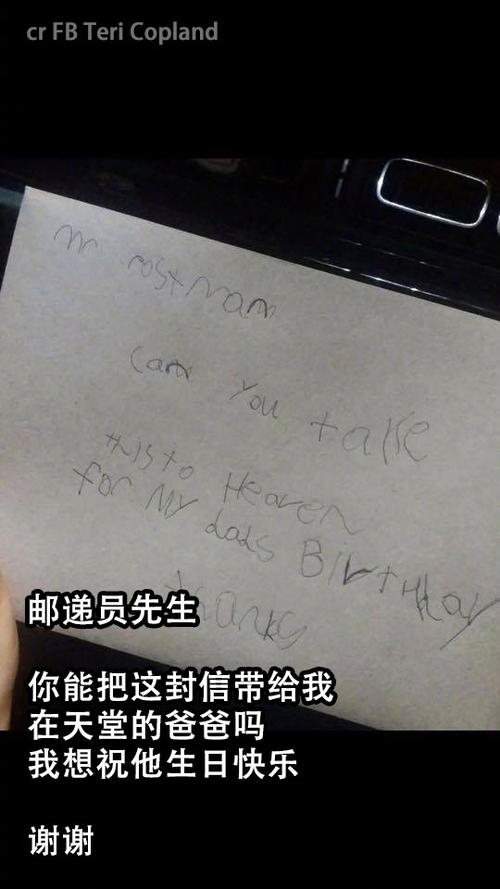 cr FB Teri Copland
Mr Postman
Can You take
this to Heaven
for My dads Birthday
thanks
邮递员先生
你能把这封信带给我
在天堂的爸爸吗
我想祝他生日快乐
谢谢